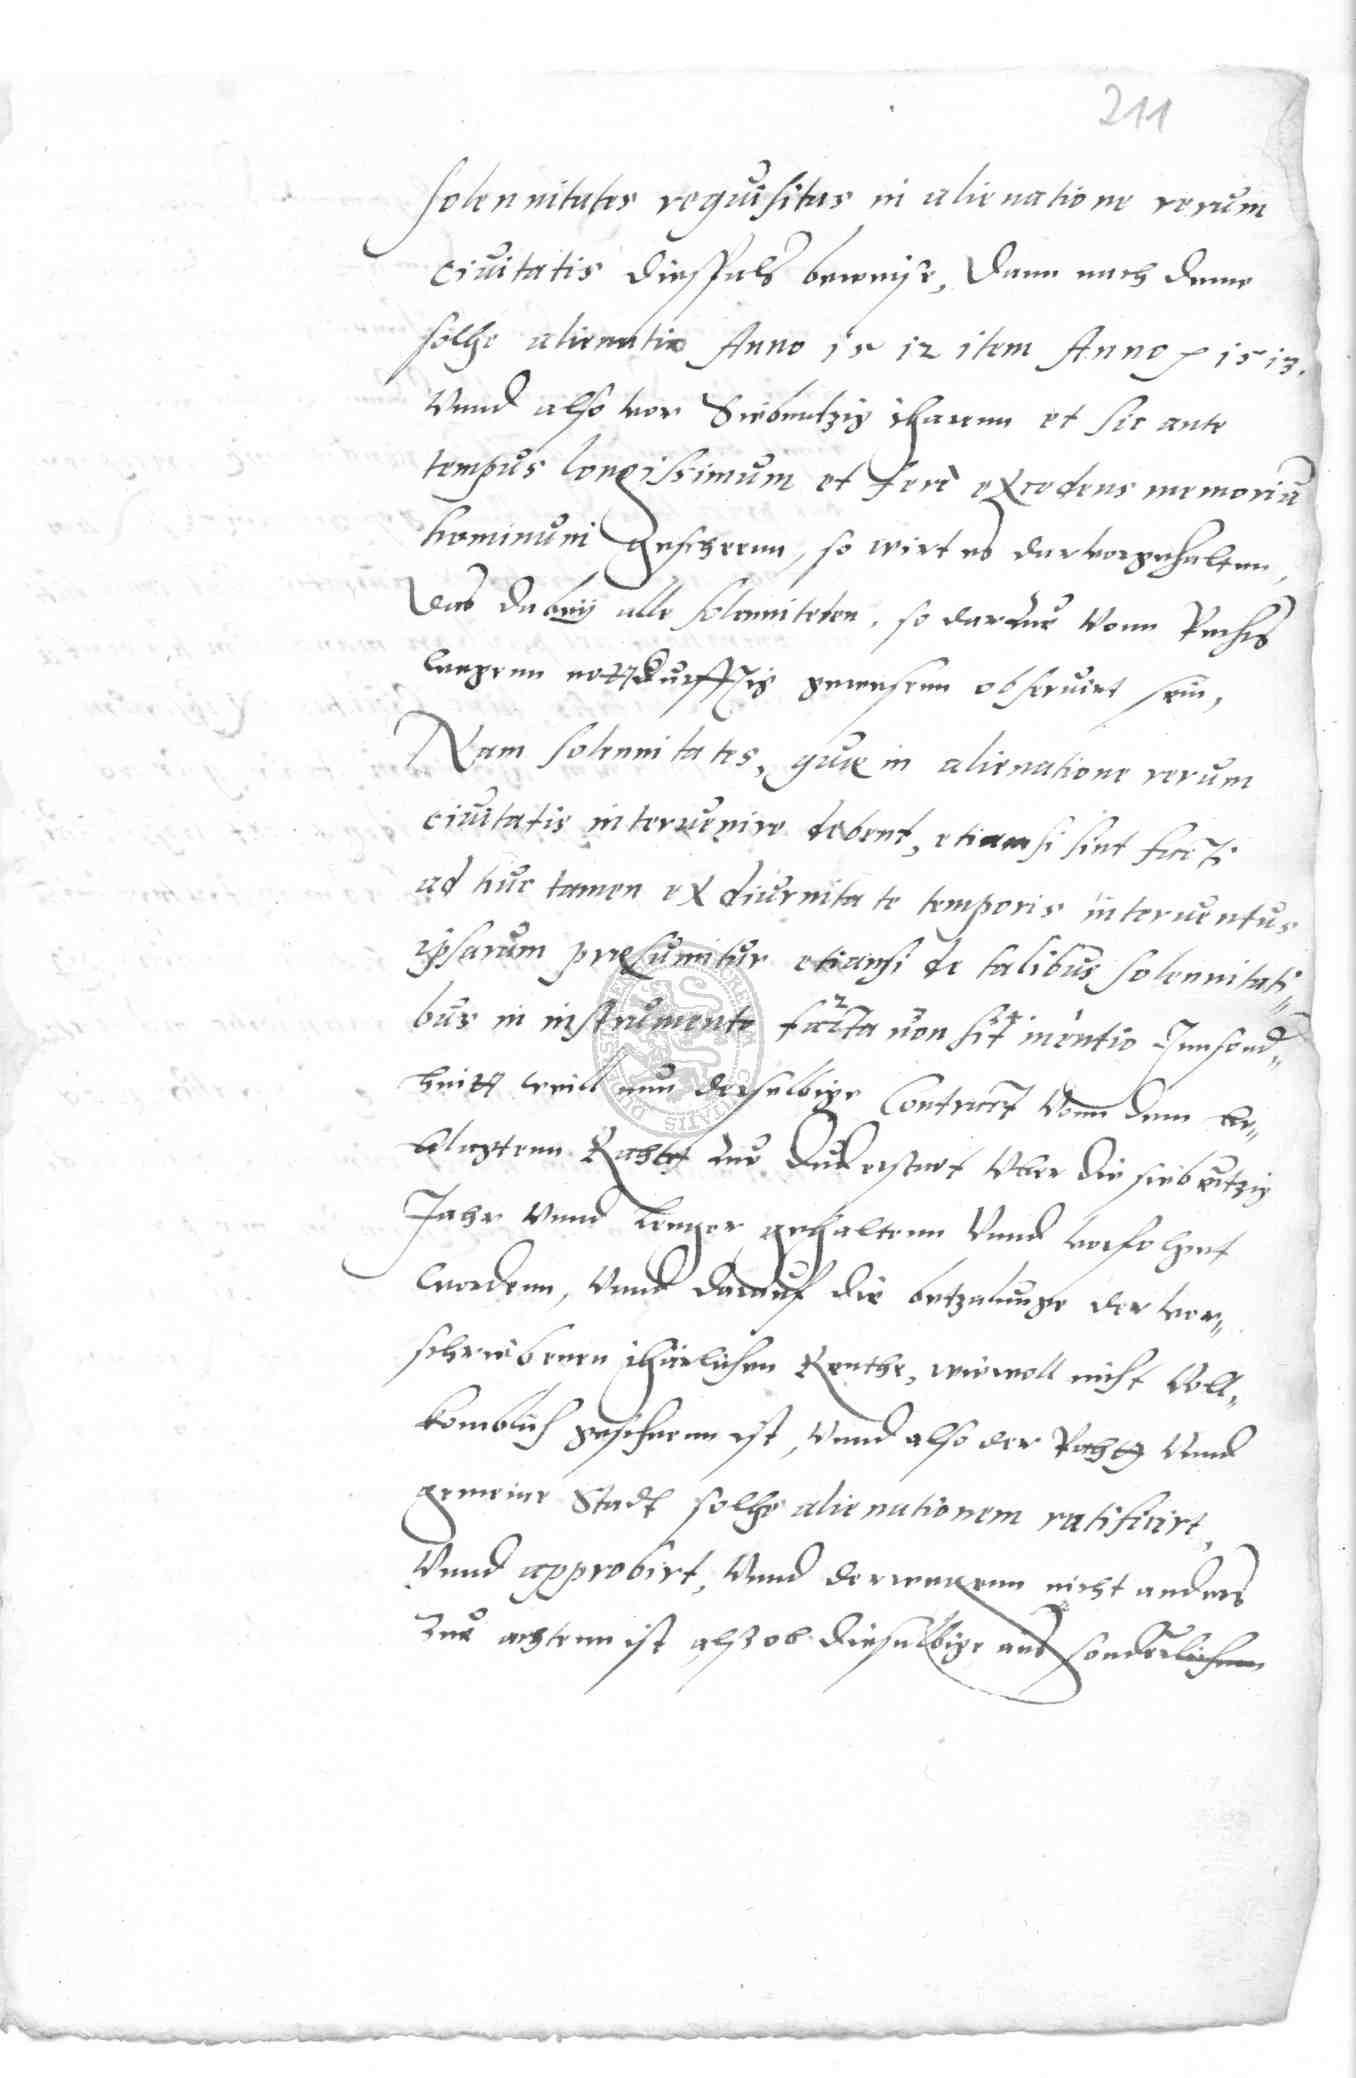 211
solennitates requisitas in alienatione rerum
ciuitatis diesfals beweise, dann nach deme
solche alienatio Anno 1512 item Anno 1513.
Vnnd also vor Siebentzig iharenn et sic ante
tempus longissimum et ferè excedens memoriã
hominum gescheenn, so wirt es darvorgehaltenn,
das dabeÿ alle solenniteten, so darzue vonn Rechts
wegenn nottdurfftig gewesenn obseruirt sein,
Nam solennitates, quæ in alienatione rerum
ciuitatis interuenire debent, etiamsi sint
ad huc tamen ex diurnitate temporis interuentus
ipsarum præsumitur etiamsi de talibus solennitati„
bus in instrumento facta non sit mentio Innsond„
heitt weill nun derselbige Contract vonn dem be„
klagtenn Rahtt zue Duderstadt vber die siebentzig
Jahr vnnd lenger gehaltenn vnnd vorfolget
wordenn, vnnd darauf die betzalunge der vor„
schriebenen iharlichen Renthe, wiewoll nicht voll„
komblich gescheenn ist, vnnd also der Rahtt vnnd
gemeine Stadt solche alienationem ratificirt,
Vnnd approbirt, vnnd derwegenn nicht anders
zue achtenn ist alß ob dieselbige aus sonderlichenn
SIGILLUM SECRETUM CIVITATIS DUDERSTADT